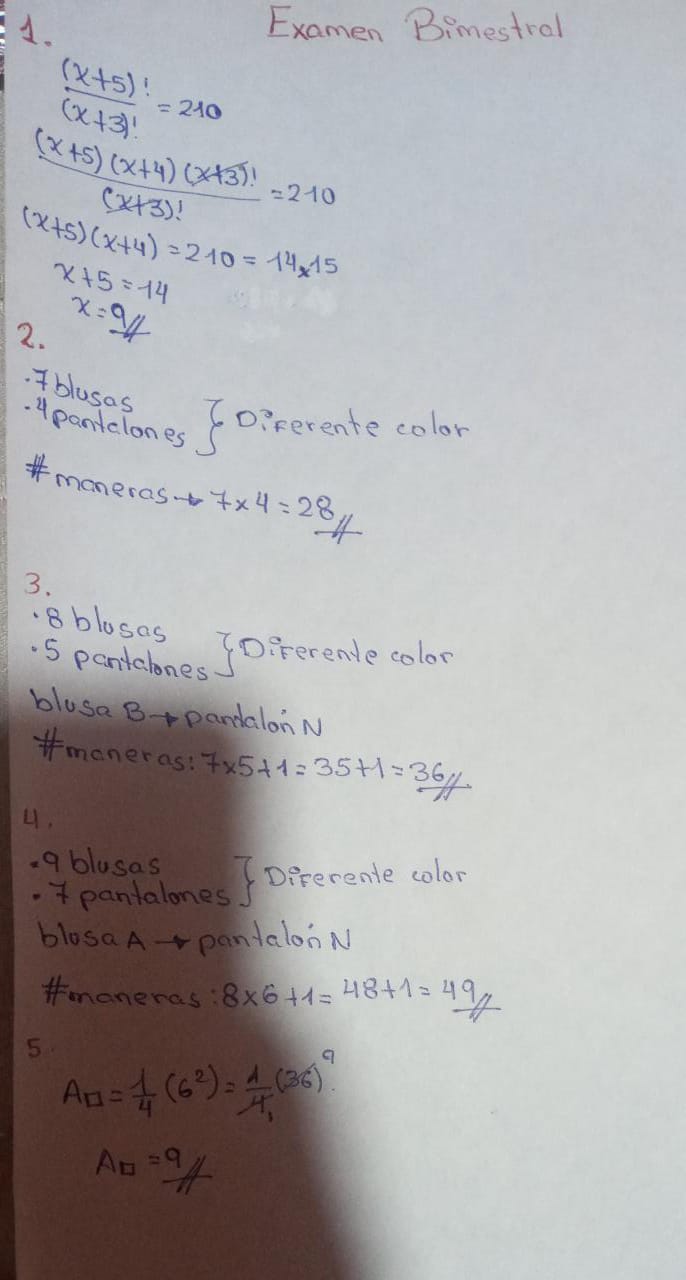 Examen Bimestral
1.
(x+5)! / (x+3)! = 210
(x+5)(x+4)(x+3)! / (x+3)! = 210
(x+5)(x+4) = 210 = 14x15
x+5 = 14
x = 9
2.
·7 blusas
·4 pantalones } Diferente color
# maneras → 7x4 = 28
3.
·8 blusas
·5 pantalones } Diferente color
blusa B → pantalón N
# maneras: 7x5+1 = 35+1 = 36
4.
·9 blusas
·7 pantalones } Diferente color
blusa A → pantalón N
# maneras: 8x6+1 = 48+1 = 49
5.
A□ = 1/4 (6²) = 1/4 (36) 9
A□ = 9